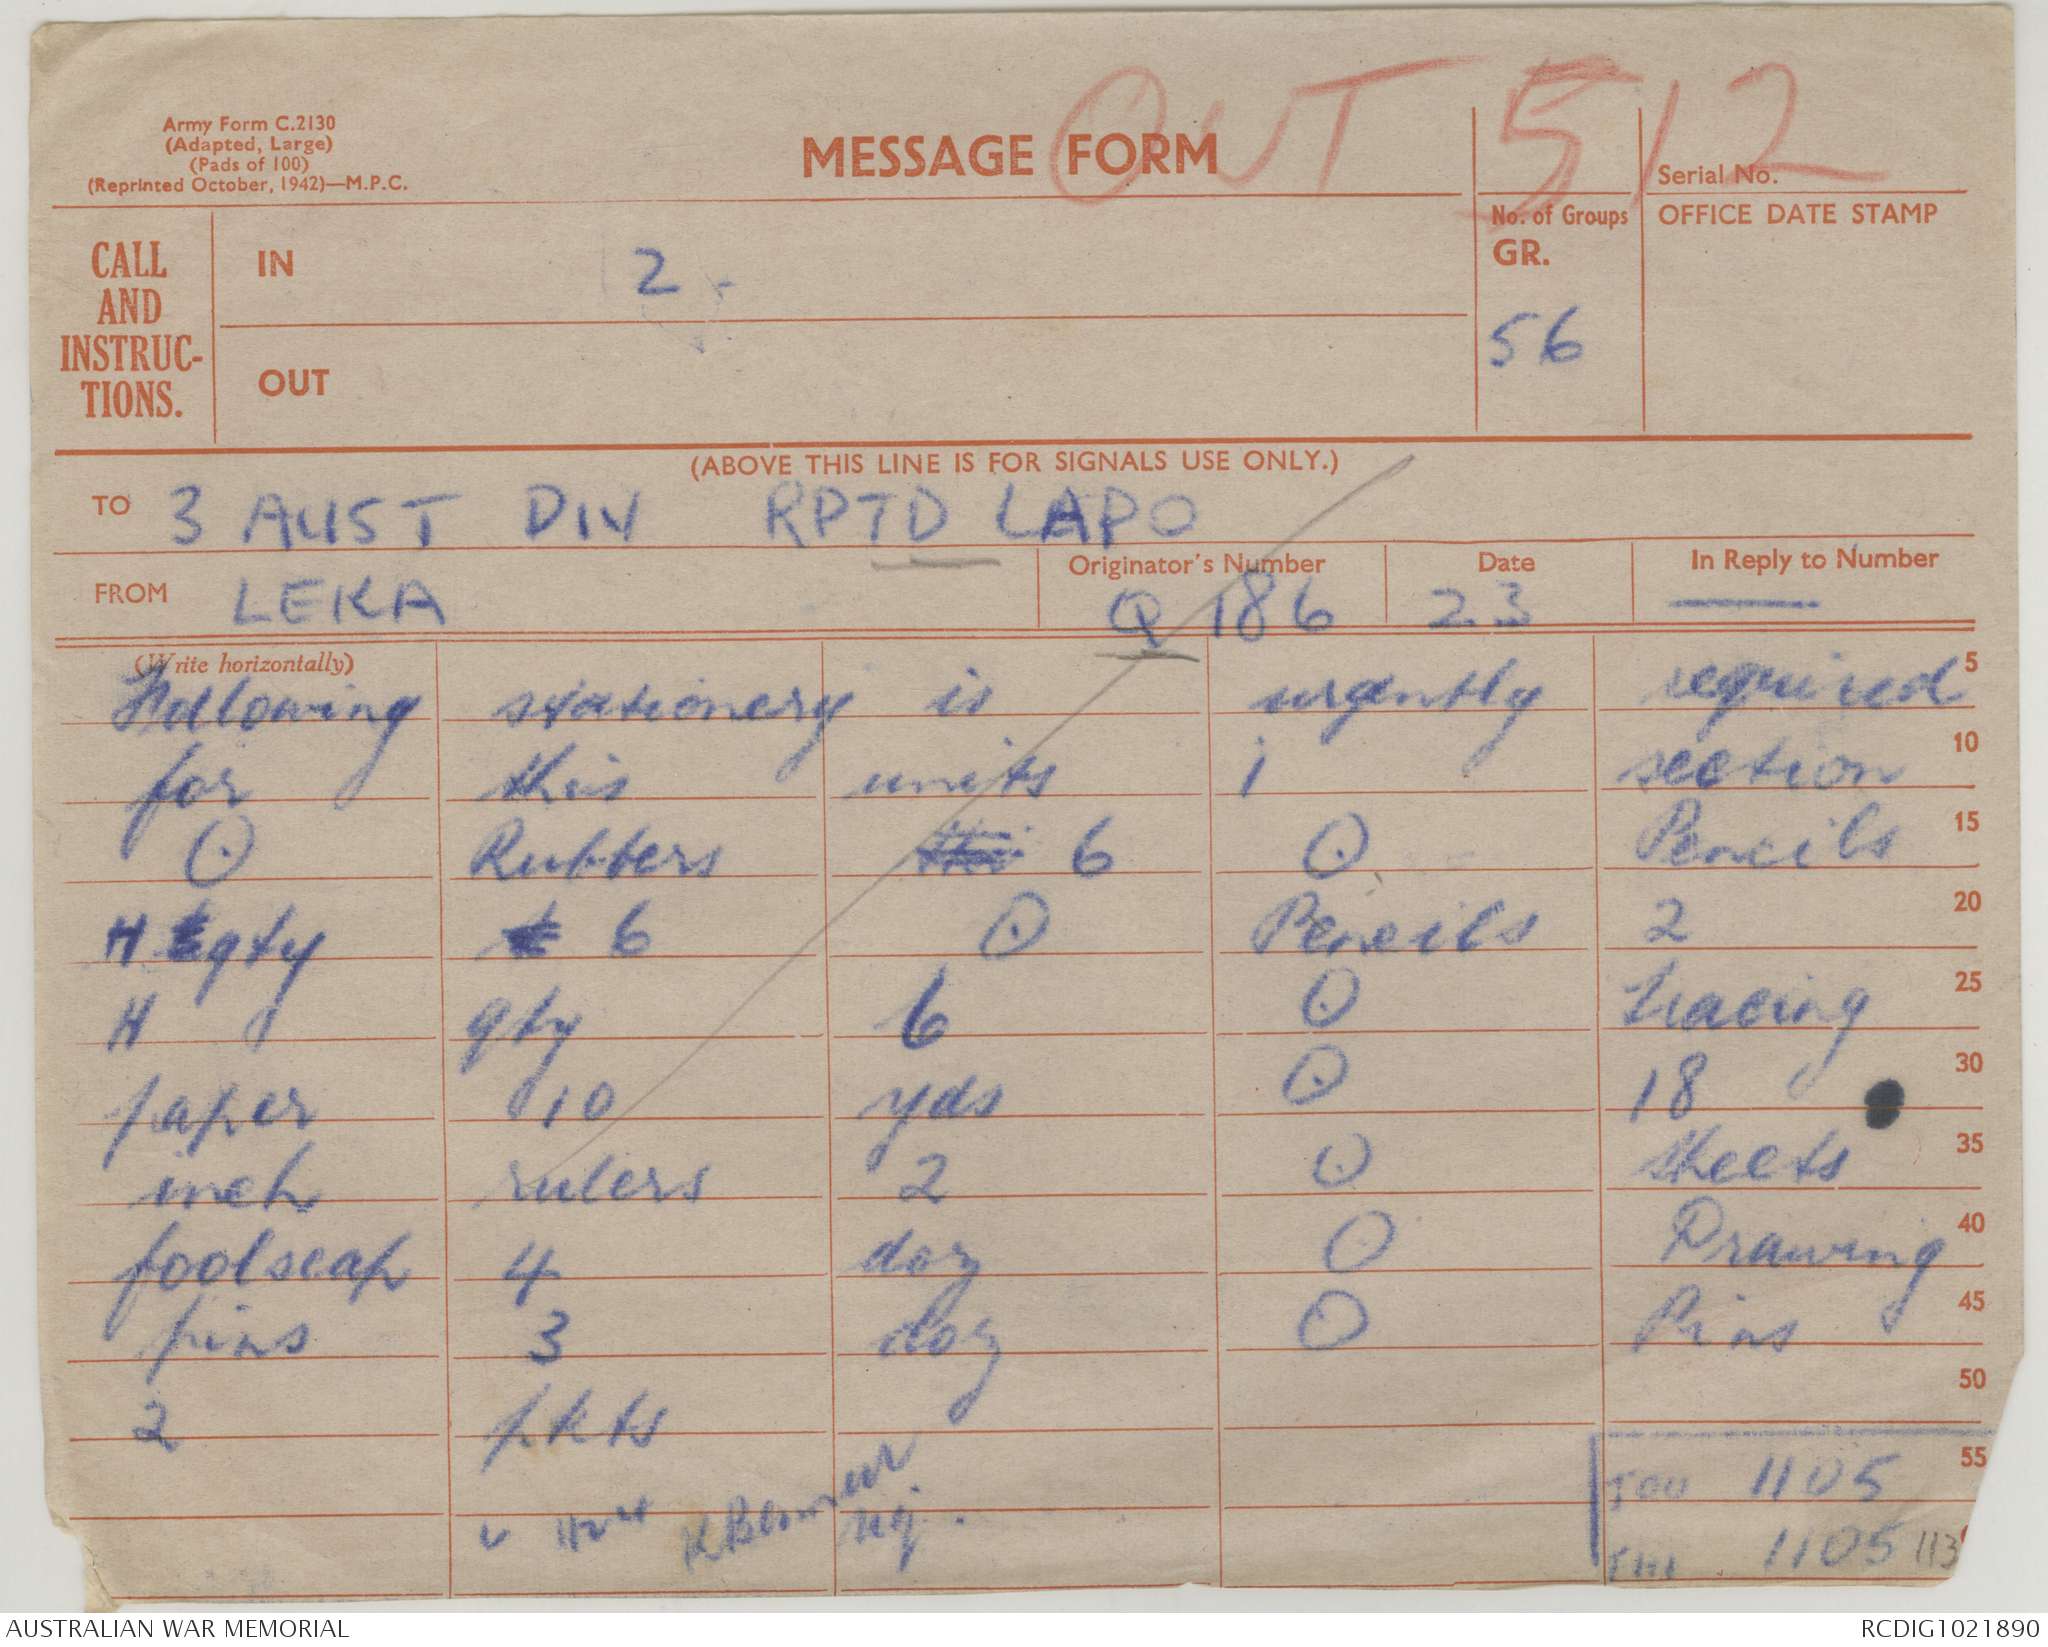 OUT 512
Army Form C.2130
(Adapted, Large)
(Pads of 100)
(Reprinted October, 1942)—M.P.C.
MESSAGE FORM
Serial No.
CALL
AND
INSTRUC-
TIONS.
IN 2
OUT
No. of Groups
GR.
56
OFFICE DATE STAMP
(ABOVE THIS LINE IS FOR SIGNALS USE ONLY.)
TO 3 AUST DIV RPTD LAPO
FROM LEKA
Originator's Number
Q 186
Date
23
In Reply to Number
(Write horizontally)
Following stationery is urgently required 5
for this units i section 10
O Rubbers 6 O Pencils 15
H qty 6 O Pencils 2 20
H qty 6 O tracing 25
paper 10 yds O 18 30
inch rulers 2 O sheets 35
foolscap 4 doz O Drawing 40
pins 3 doz O Pins 45
2 pkts 50
55
TOO 1105
THI 1105 113
AUSTRALIAN WAR MEMORIAL
RCDIG1021890